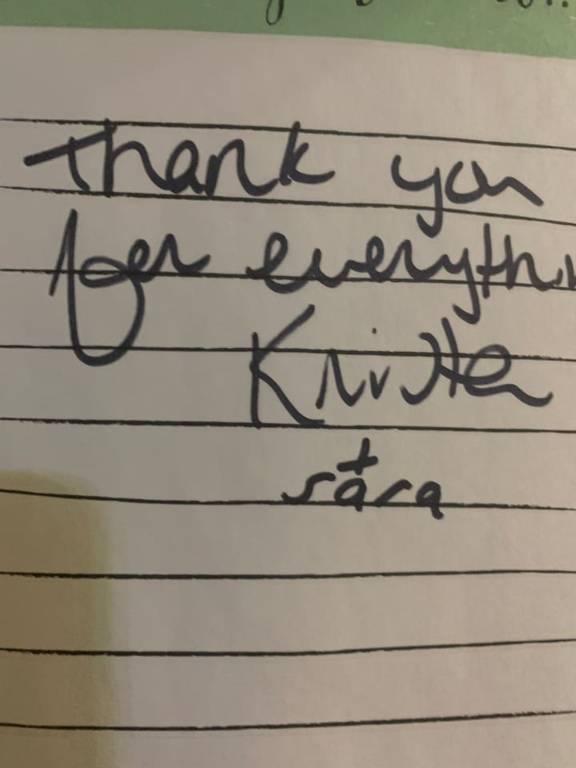 Thank you
for everythin
Kristen
+
sara